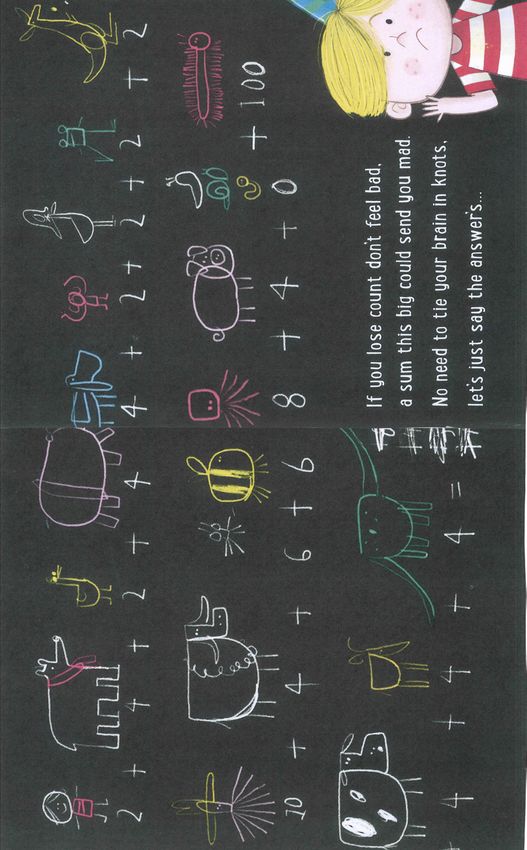 2 + 4 + 2 + 4 + 4 + 2 + 2 + 2 + 2
10 + 4 + 6 + 6 8 + 4 + 0 + 100
+ 4 + 4 + 4 =
If you lose count don't feel bad,
a sum this big could send you mad.
No need to tie your brain in knots,
let's just say the answer's...